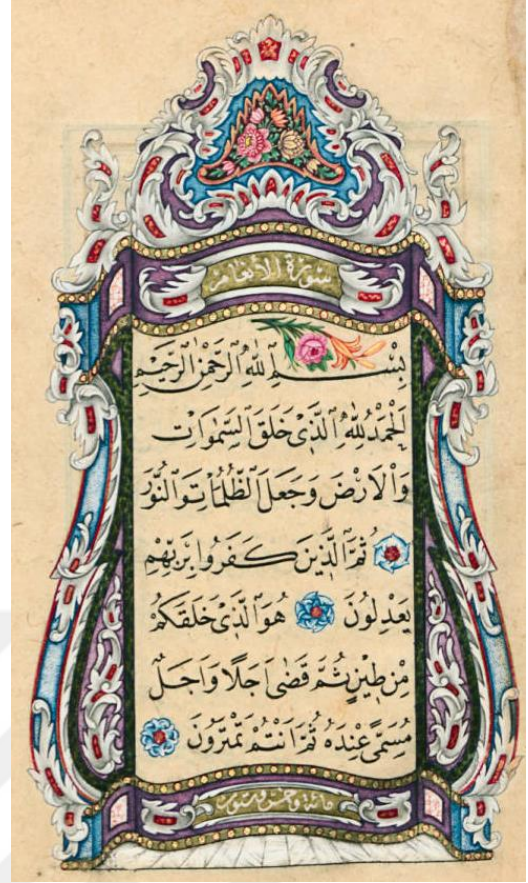 سورة الأنعام
بِسْمِ اللّٰهِ الرَّحْمٰنِ الرَّحِيمِ
اَلْحَمْدُ لِلّٰهِ الَّذِي خَلَقَ السَّمٰوَاتِ
وَالْاَرْضَ وَجَعَلَ الظُّلُمَاتِ وَالنُّورَ
ثُمَّ الَّذِينَ كَفَرُوا بِرَبِّهِمْ
يَعْدِلُونَ هُوَ الَّذِي خَلَقَكُمْ
مِنْ طِينٍ ثُمَّ قَضٰى اَجَلًا وَاَجَلٌ
مُسَمًّى عِنْدَهُ ثُمَّ اَنْتُمْ تَمْتَرُونَ
مائة وخمس وستون